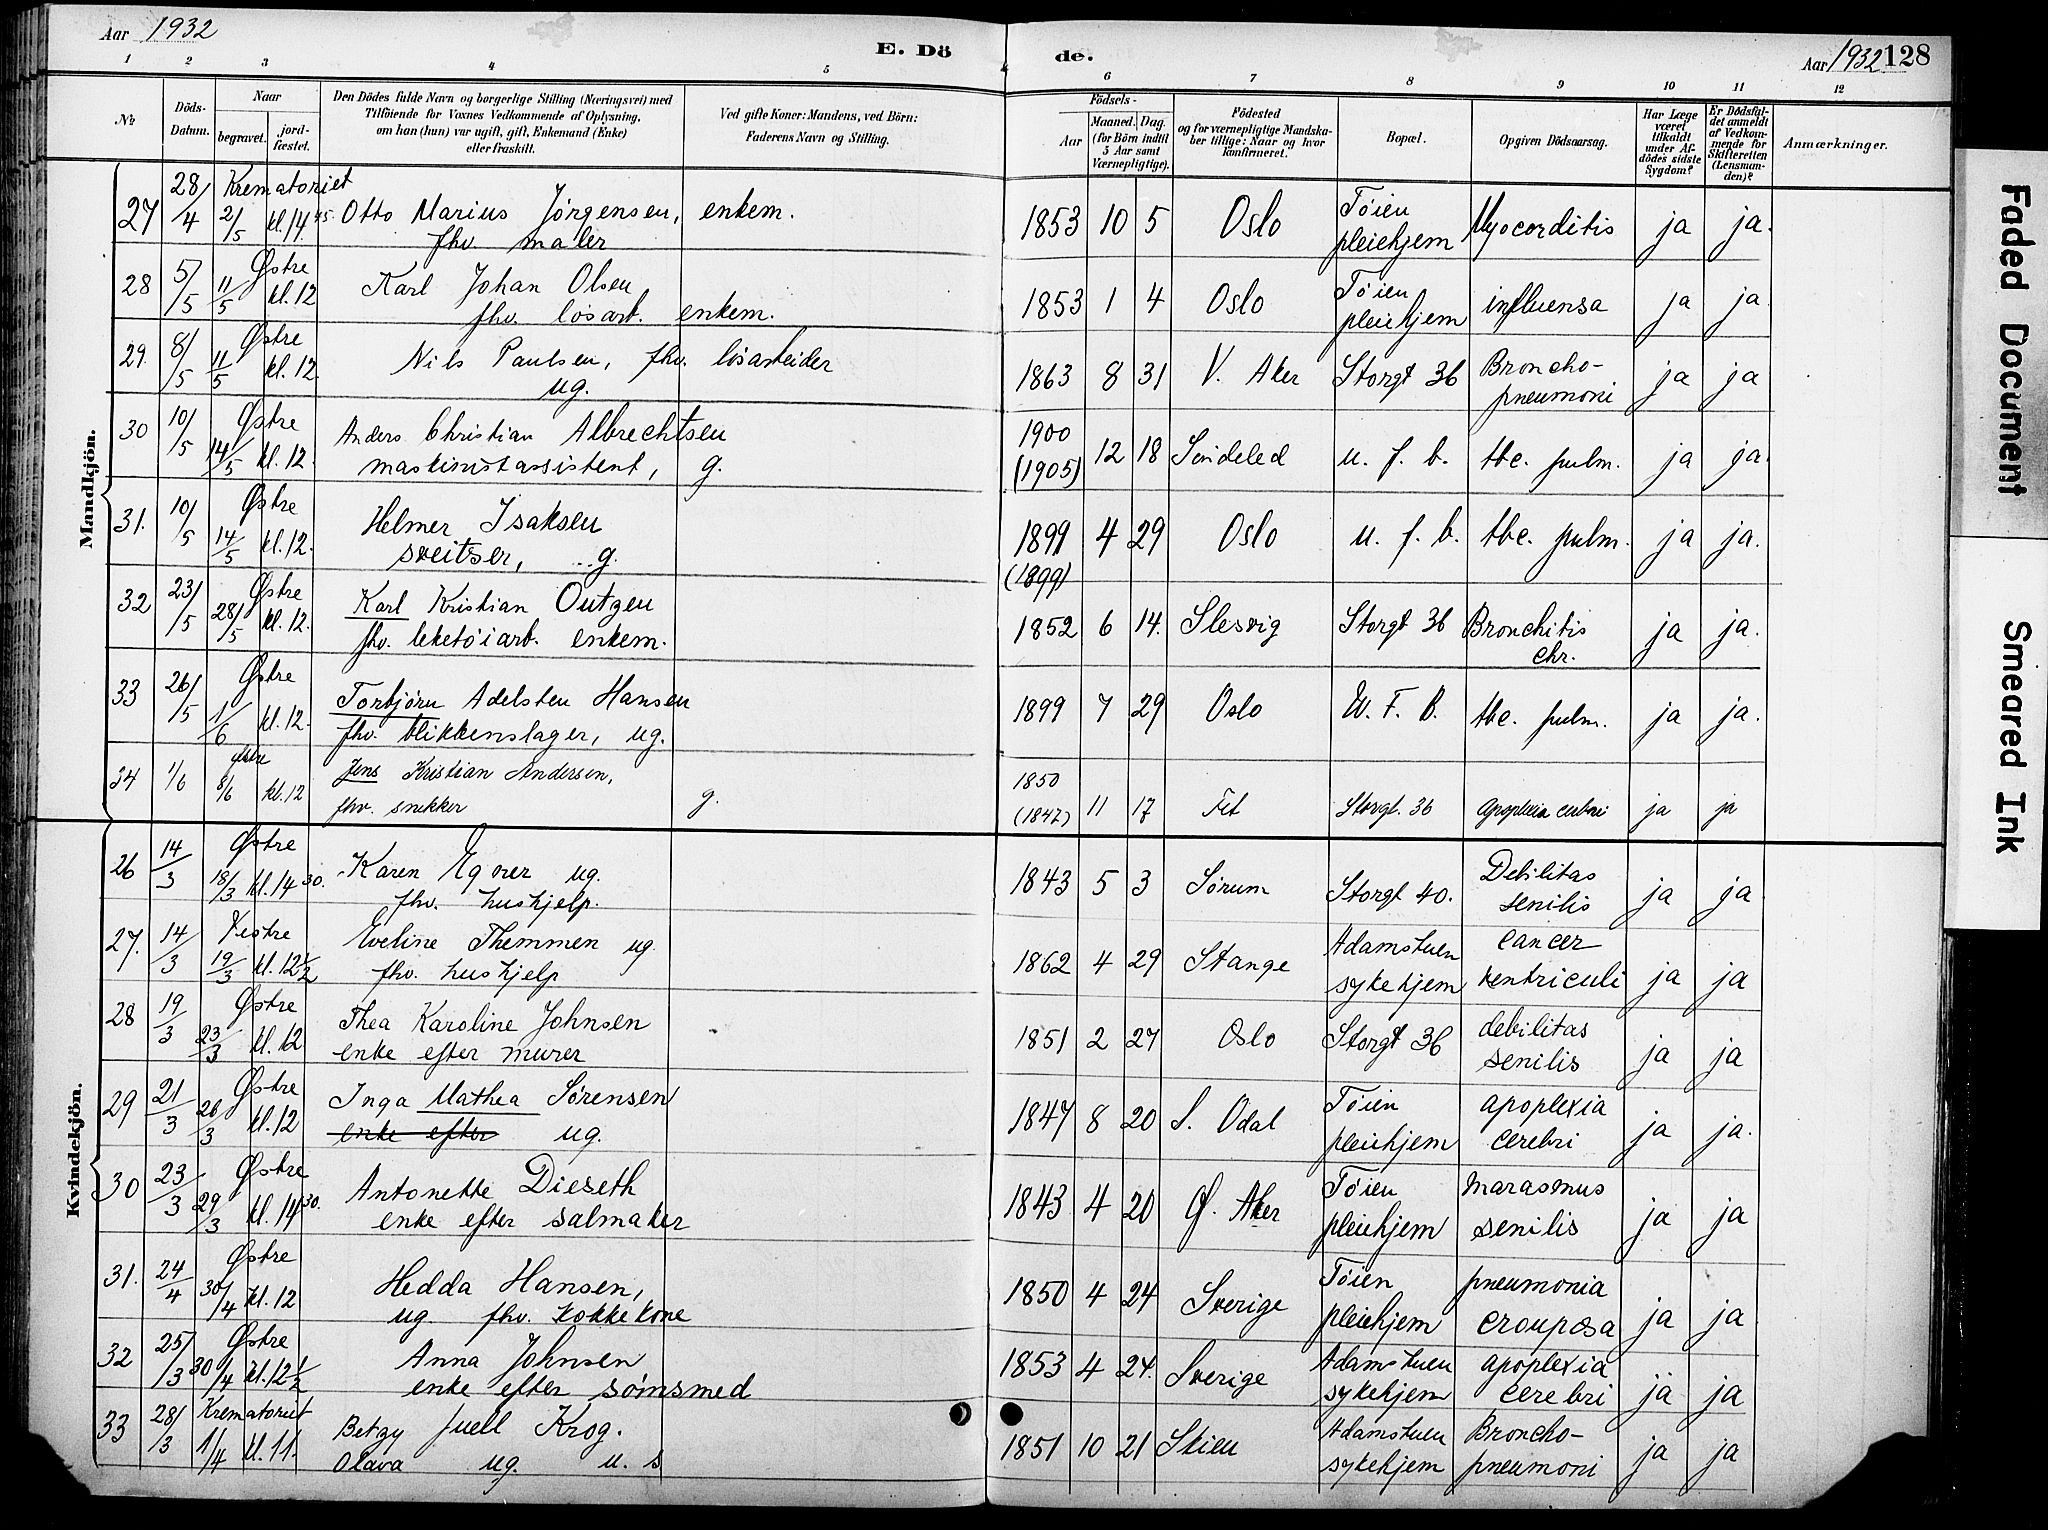 Aar 1932
E. Dö
de.
Aar 1932 128
1 2 3 4 5 6 7 8 9 10 11 12
No
Döds-Datum.
Naar
begravet.
jord-fæstet.
Den Dödes fulde Navn og borgerlige Stilling (Næringsvei) med
Tilföiende for Voxnes Vedkommende af Oplysning,
om han (hun) var ugift, gift, Enkemand (Enke)
eller fraskilt.
Ved gifte Koner: Mandens, ved Börn:
Faderens Navn og Stilling.
Födsels-
Aar
Maaned. Dag.
(for Börn indtil
5 Aar samt
Værnepligtige).
Födested
og for værnepligtige Mandska-
ber tillige: Naar og hvor
konfirmeret.
Bopæl.
Opgiven Dödsaarsag.
Har Læge
været
tilkaldt
under Af-
dödes sidste
Sygdom?
Er Dödsfal-
det anmeldt
af Vedkom-
mende for
Skifteretten
(Lensman-
den)?
Anmærkninger.
Mandkjön.
27 28/4 Krematoriet 2/5 kl. 14.45. Otto Marius Jörgensen, enkem. 1853 10 5 Oslo Töien Myocorditis ja ja.
fhv. maler pleiehjem
28 5/5 Østre 11/5 kl. 12 Karl Johan Olsen 1853 1 4 Oslo Töien influensa ja ja.
fhv. løsarb. enkem. pleiehjem
29. 8/5 Østre 11/5 kl. 12. Nils Paulsen, fhv. løsarbeider 1863 8 31 V. Aker Storgt 36 Broncho- ja ja
ug. pneumoni
30 10/5 Østre 14/5 kl. 12. Anders Christian Albrechtsen 1900 12 18 Söndeled u. f. b. tbc. pulm. ja ja.
maskinistassistent, g. (1905)
31. 10/5 Østre 14/5 kl. 12. Helmer Isaksen 1899 4 29 Oslo u. f. b. tbc. pulm. ja ja.
sveitser, g. (1899)
32 23/5 Østre 28/5 kl. 12. Karl Kristian Outzen 1852 6 14. Slesvig Storgt 36 Bronchitis ja ja.
fhv. leketöiarb. enkem. chr.
33 26/5 Østre 1/6 kl. 12. Torbjörn Adelsten Hansen 1899 7 29 Oslo U. F. B. tbc. pulm. ja ja.
fhv. blikkenslager, ug.
34 1/6 Østre 8/6 kl. 12 Jens Kristian Andersen, 1850 11 17 Fet Storgt. 36 apoplexia cerebri ja ja
fhv. snekker g. (1847)
Kvindekjön.
26 14/3 Østre 18/3 kl. 14 30. Karen Egner ug. 1843 5 3 Sørum Storgt 40. Debilitas ja ja
fhv. hushjelp. senilis
27. 14/3 Vestre 19/3 kl. 12½ Eveline Themmen ug. 1862 4 29 Stange Adamstuen cancer ja ja
fhv. hushjelp sykehjem ventriculi
28 19/3 Østre 23/3 kl. 12 Thea Karoline Johnsen 1851 2 27 Oslo Storgt 36 debilitas ja ja
enke efter murer senilis
29 21/3 Østre 26/3 kl. 12 Inga Mathea Sørensen 1847 8 20 S. Odal Töien apoplexia ja ja.
enke efter ug. pleiehjem cerebri
30 23/3 Østre 29/3 kl. 14 30. Antonette Dieseth 1843 4 20 Ø. Aker Töien marasmus ja ja
enke efter salmaker pleiehjem senilis
31. 24/4 Østre 30/4 kl. 12 Hedda Hansen, 1850 4 24 Sverige Töien pneumonia ja ja
ug. fhv. kokkekone pleiehjem crouposa
32 25/3 Østre 30/4 kl. 12½ Anna Johnsen 1853 4 24. Sverige Adamstuen apoplexia ja ja
enke efter sömsmed sykehjem cerebri
33 28/3 Krematoriet 1/4 kl. 11. Betzy Juell Krog. 1851 10 21 Skien Adamstuen Broncho- ja ja
Olava ug. u. s sykehjem pneumoni
Faded Document
Smeared Ink